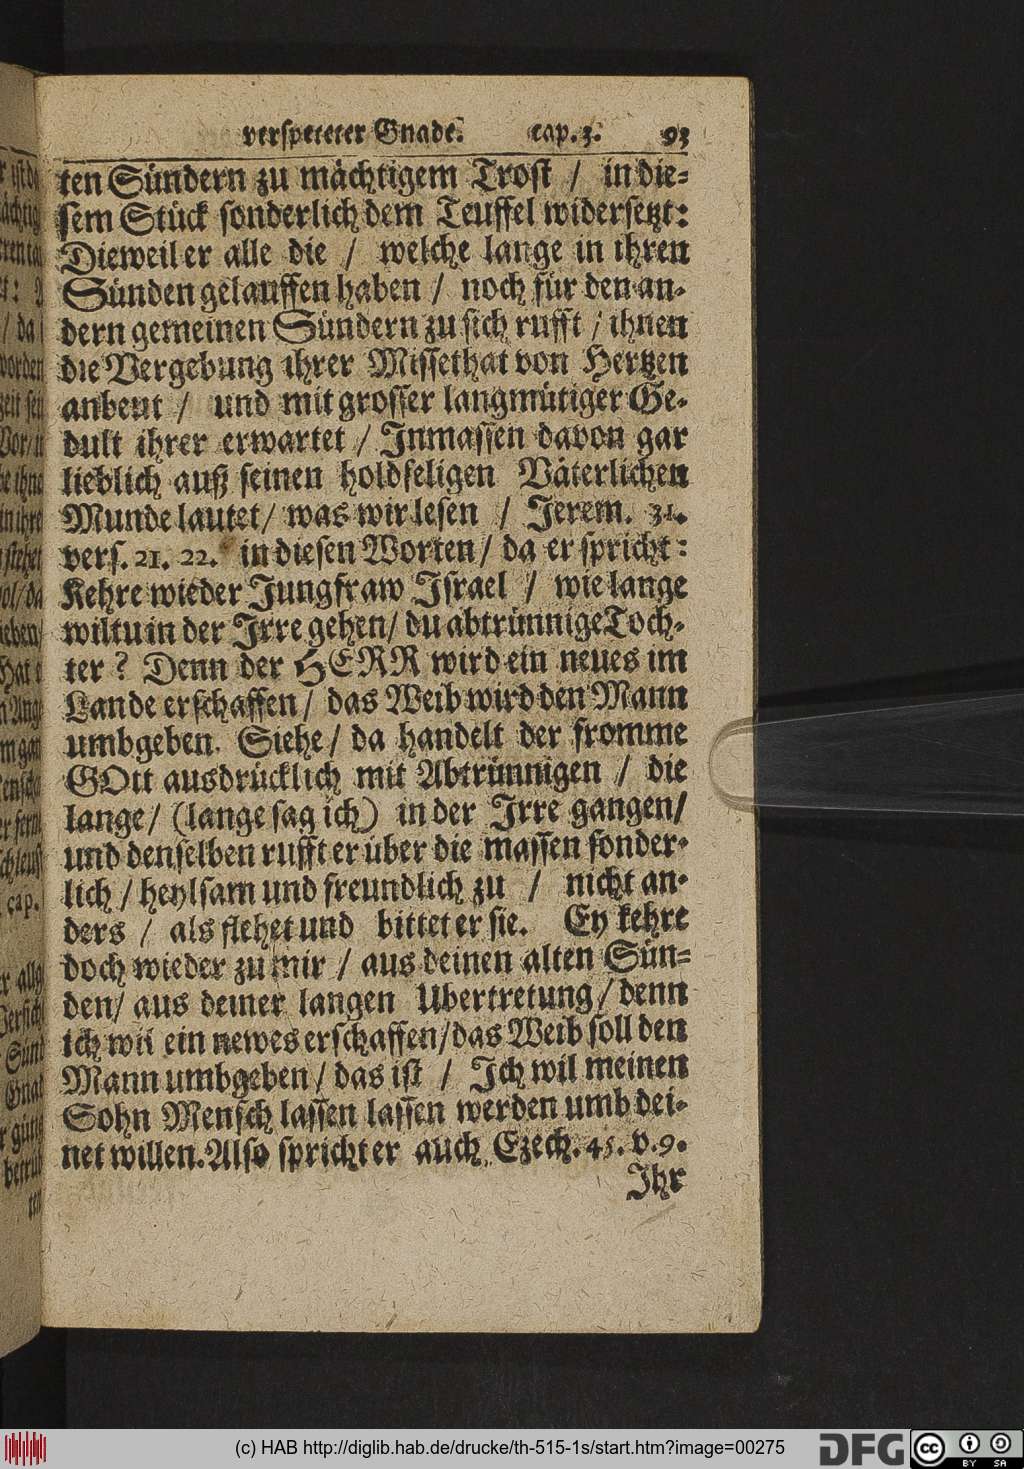 verspeteter Gnade. cap. 3. 93
ten Sündern zu mächtigem Trost / in die-
sem Stück sonderlich dem Teuffel widersetzt:
Dieweil er alle die / welche lange in ihren
Sünden gelauffen haben / noch für den an-
dern gemeinen Sündern zu sich rufft / ihnen
die Vergebung ihrer Missethat von Hertzen
anbeut / und mit grosser langmütiger Ge-
dult ihrer erwartet / Inmassen davon gar
lieblich auß seinen holdseligen Väterlichen
Munde lautet / was wir lesen / Jerem. 31.
vers. 21. 22. in diesen Worten / da er spricht:
Kehre wieder Jungfraw Israel / wie lange
wiltu in der Irre gehen / du abtrünnige Toch-
ter? Denn der HERR wird ein neues im
Lande erschaffen / das Weib wird den Mann
umbgeben. Siehe / da handelt der fromme
GOtt ausdrücklich mit Abtrünnigen / die
lange / (lange sag ich) in der Irre gangen /
und denselben rufft er über die massen sonder-
lich / heylsam und freundlich zu / nicht an-
ders / als flehet und bittet er sie. Ey kehre
doch wieder zu mir / aus deinen alten Sün-
den / aus deiner langen Ubertretung / denn
ich wil ein newes erschaffen / das Weib soll den
Mann umbgeben / das ist / Ich wil meinen
Sohn Mensch lassen lassen werden umb dei-
net willen. Also spricht er auch Ezech. 45. v. 9.
Ihr
(c) HAB http://diglib.hab.de/drucke/th-515-1s/start.htm?image=00275
DFG
cc BY SA